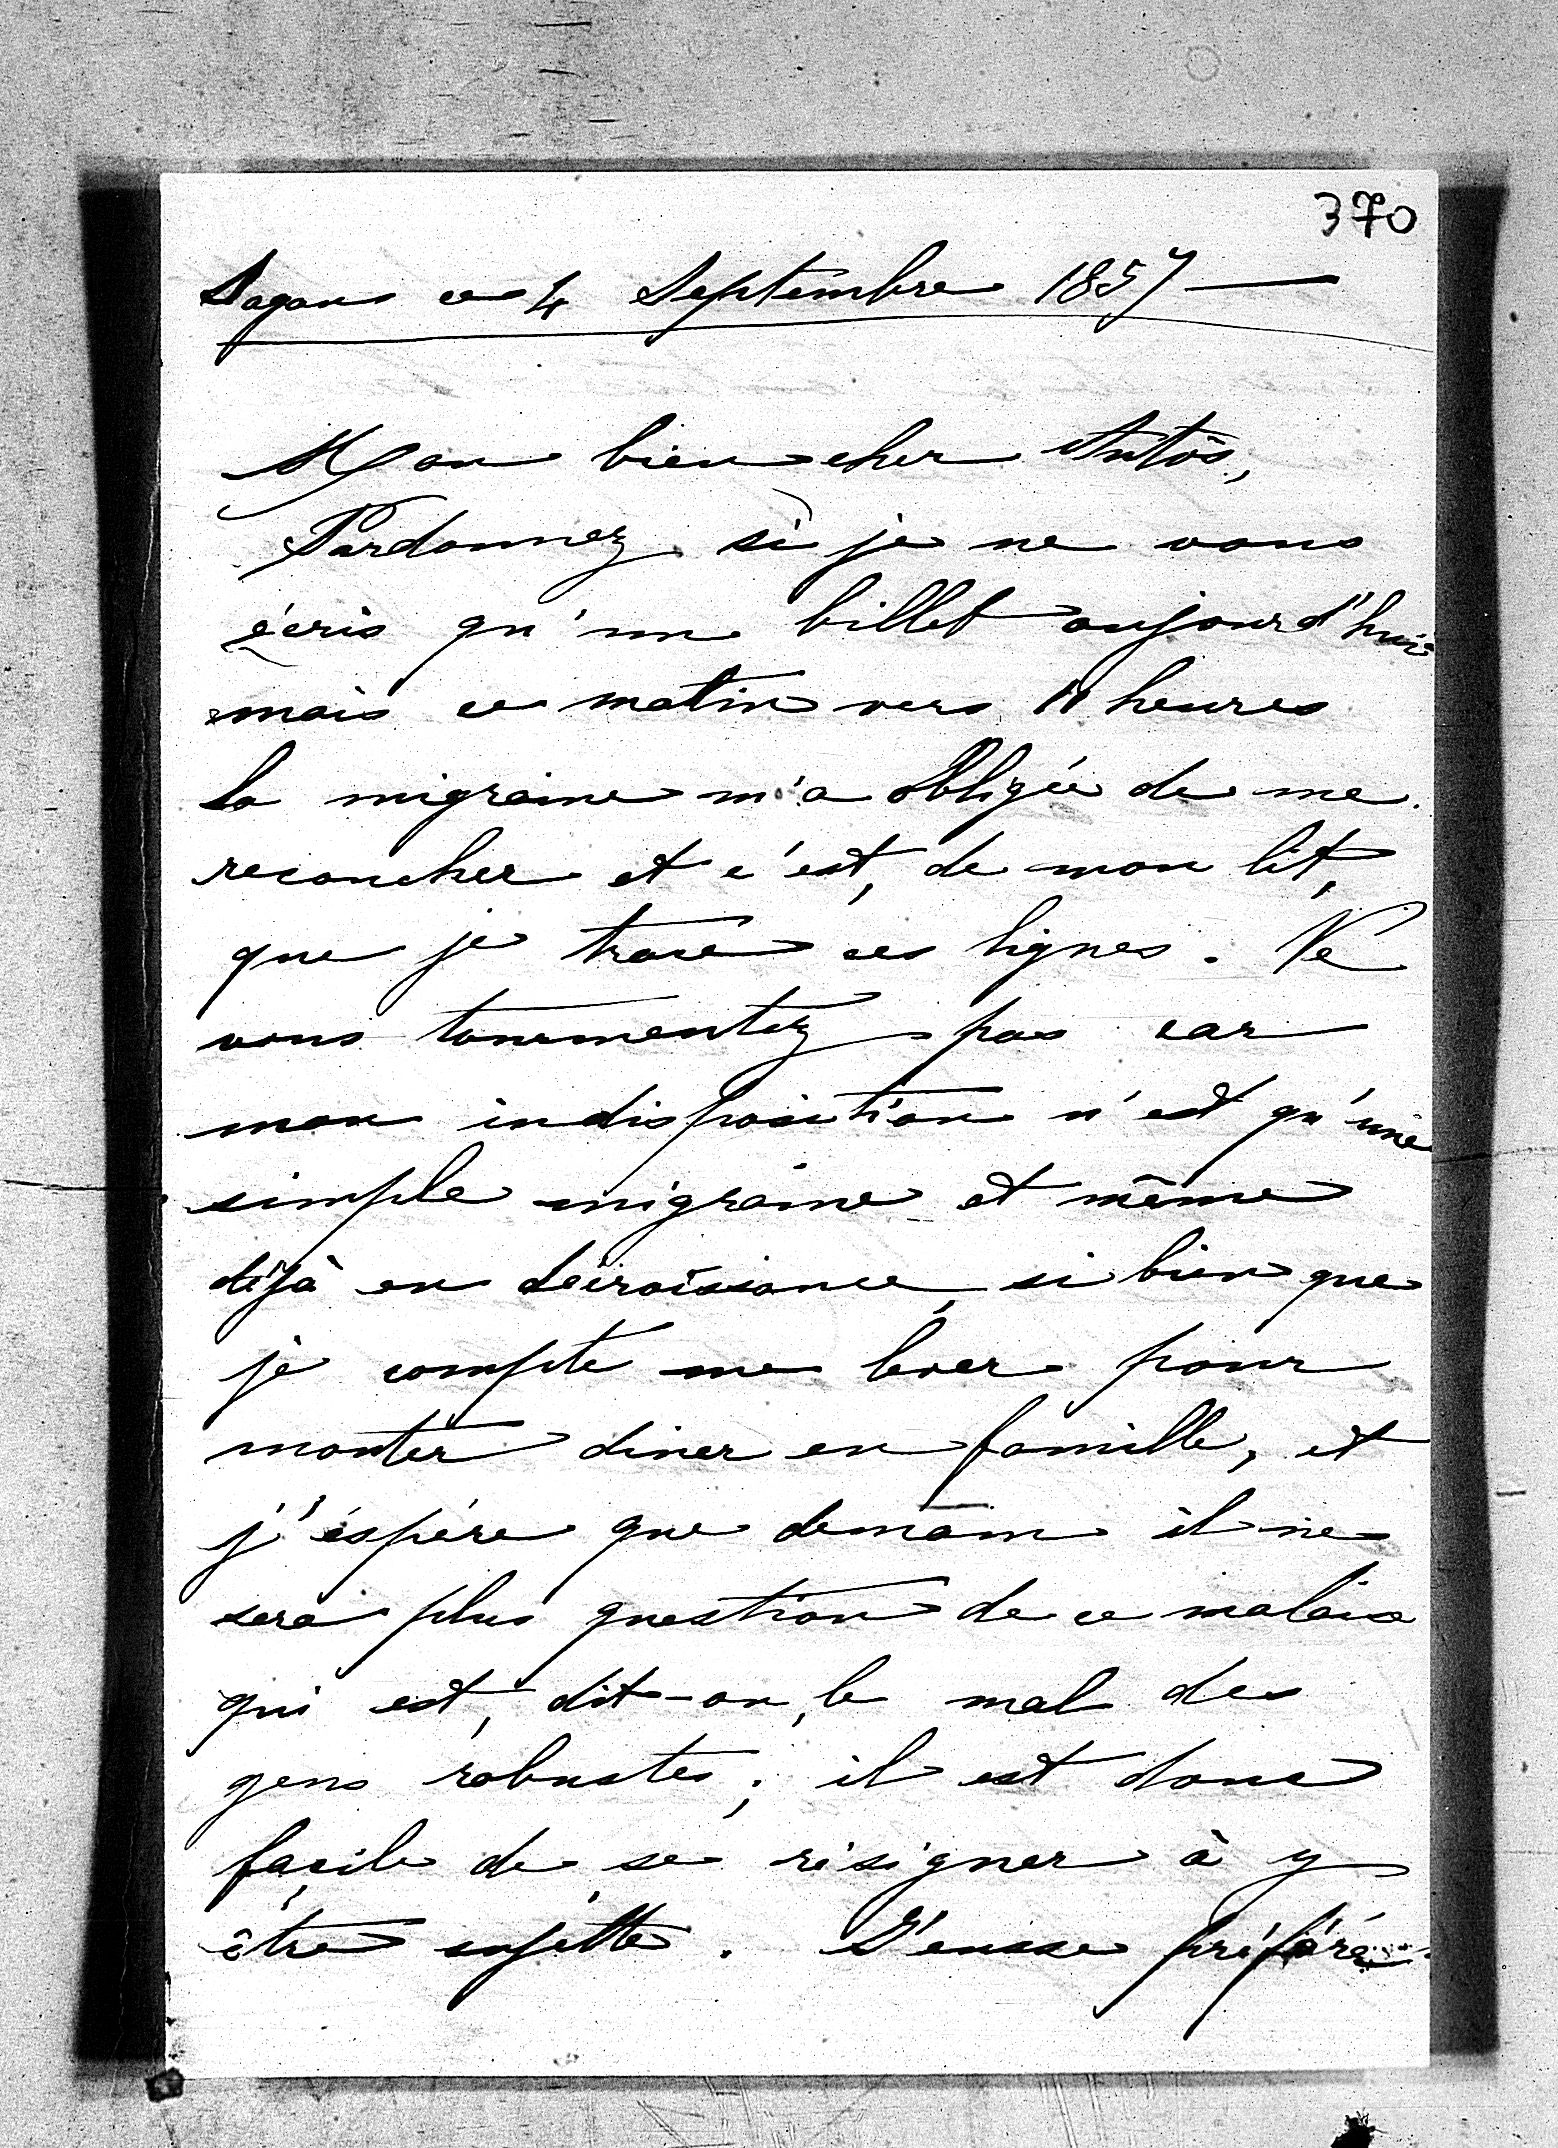 370
Sagan ce 4 Septembre 1857 —
Mon bien cher Antos,
Pardonnez si je ne vous
écris qu'un billet aujourd'hui
mais ce matin vers 11 heures
la migraine m'a obligée de me
recoucher et c'est, de mon lit,
que je trace ces lignes. Ne
vous tourmentez pas car
mon indisposition n'est qu'une
simple migraine et même
déjà en décroissance, si bien que
je compte me lever pour
monter diner en famille, et
j'éspère que demain il ne
sera plus question de ce malaise
qui est, dit-on, le mal des
gens robustes; il est donc
facile de se résigner à y
être sujette. J'eusse préféré